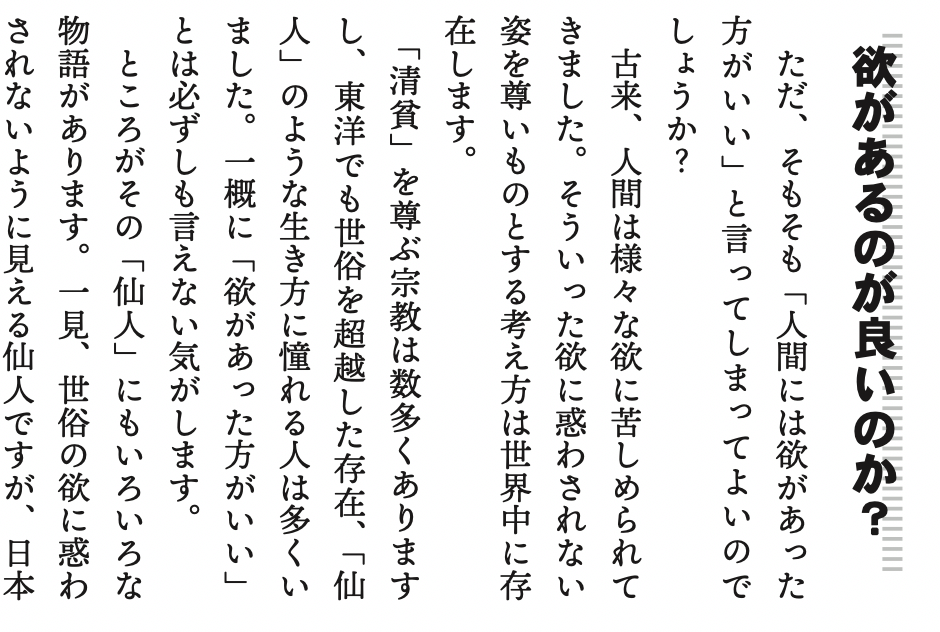 欲があるのが良いのか？
ただ、そもそも「人間には欲があった
方がいい」と言ってしまってよいので
しょうか？
古来、人間は様々な欲に苦しめられて
きました。そういった欲に惑わされない
姿を尊いものとする考え方は世界中に存
在します。
「清貧」を尊ぶ宗教は数多くあります
し、東洋でも世俗を超越した存在、「仙
人」のような生き方に憧れる人は多くい
ました。一概に「欲があった方がいい」
とは必ずしも言えない気がします。
ところがその「仙人」にもいろいろな
物語があります。一見、世俗の欲に惑わ
されないように見える仙人ですが、日本